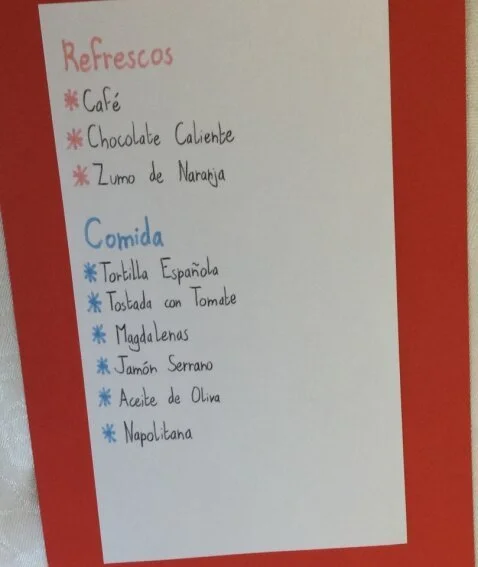 Refrescos
* Café
* Chocolate Caliente
* Zumo de Naranja
Comida
* Tortilla Española
* Tostada con Tomate
* Magdalenas
* Jamón Serrano
* Aceite de Oliva
* Napolitana